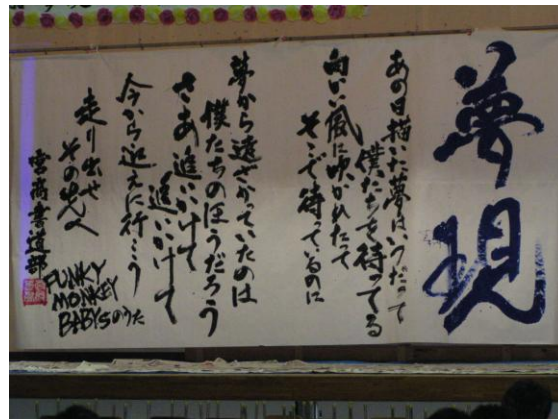 夢現
あの日描いた夢はいつだって
僕たちを待ってる
向い風に吹かれたて
そこで待っているのに
夢から遠ざかっていためは
僕たちのほうだろう
さあ追いかけて
追いかけて
今から迎えに行こう
走り出せ
その先へ
雲商書道部
FUNKY
MONKEY
BABYSのうた